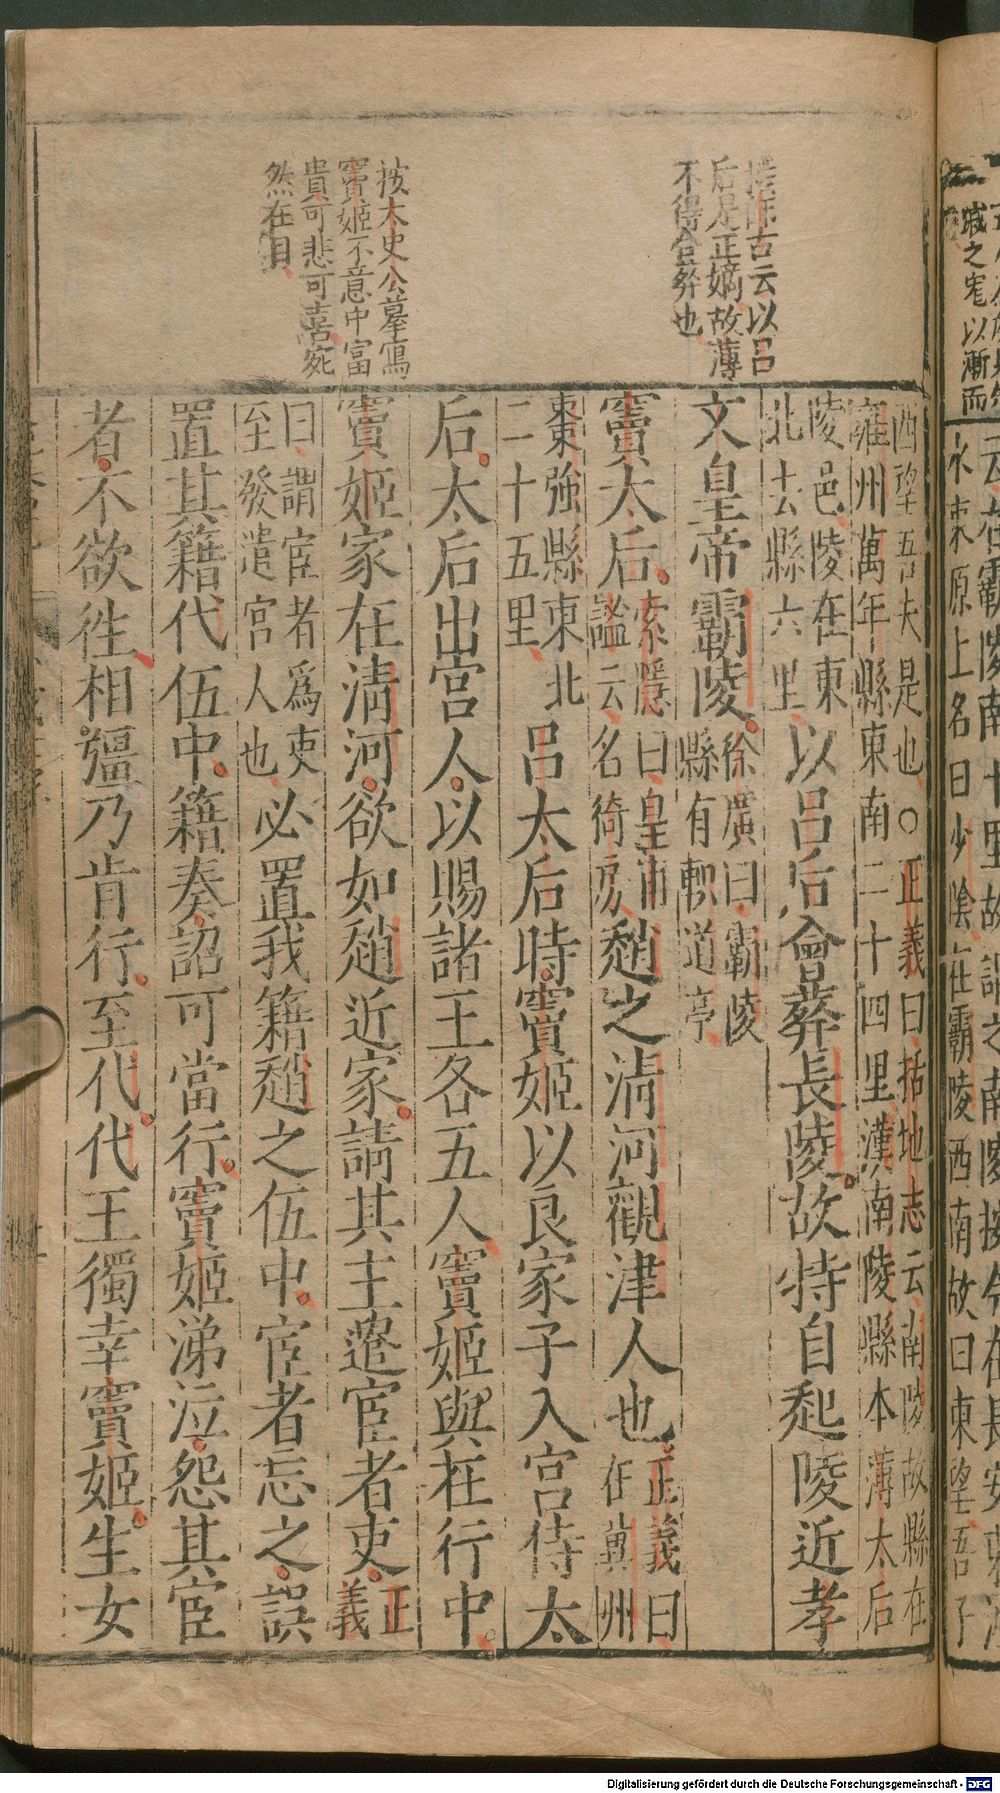 戚之寃以漸而
永東原上名曰少陰在霸陵西南故曰東望吾子
西望吾夫是也○正義曰括地志云南陵故縣在
雍州萬年縣東南二十四里漢南陵縣本薄太后
陵邑陵在東
北去縣六里
以呂后會葬長陵故特自起陵近孝
文皇帝霸陵
徐廣曰霸陵
縣有軹道亭
竇太后
索隱曰皇甫
謐云名猗房
趙之淸河觀津人也
正義曰
在冀州
棗強縣東北
二十五里
呂太后時竇姬以良家子入宮侍太
后太后出宮人以賜諸王各五人竇姬與在行中
竇姬家在淸河欲如趙近家請其主遣宦者吏
正
義
曰謂宦者爲吏
至發遣宮人也
必置我籍趙之伍中宦者忘之誤
置其籍代伍中籍奏詔可當行竇姬涕泣怨其宦
者不欲徃相彊乃肯行至代代王獨幸竇姬生女
古云以呂
后是正嫡故薄
不得合葬也
按太史公摹寫
竇姬不意中富
貴可悲可喜宛
然在目
Digitalisierung gefördert durch die Deutsche Forschungsgemeinschaft - DFG